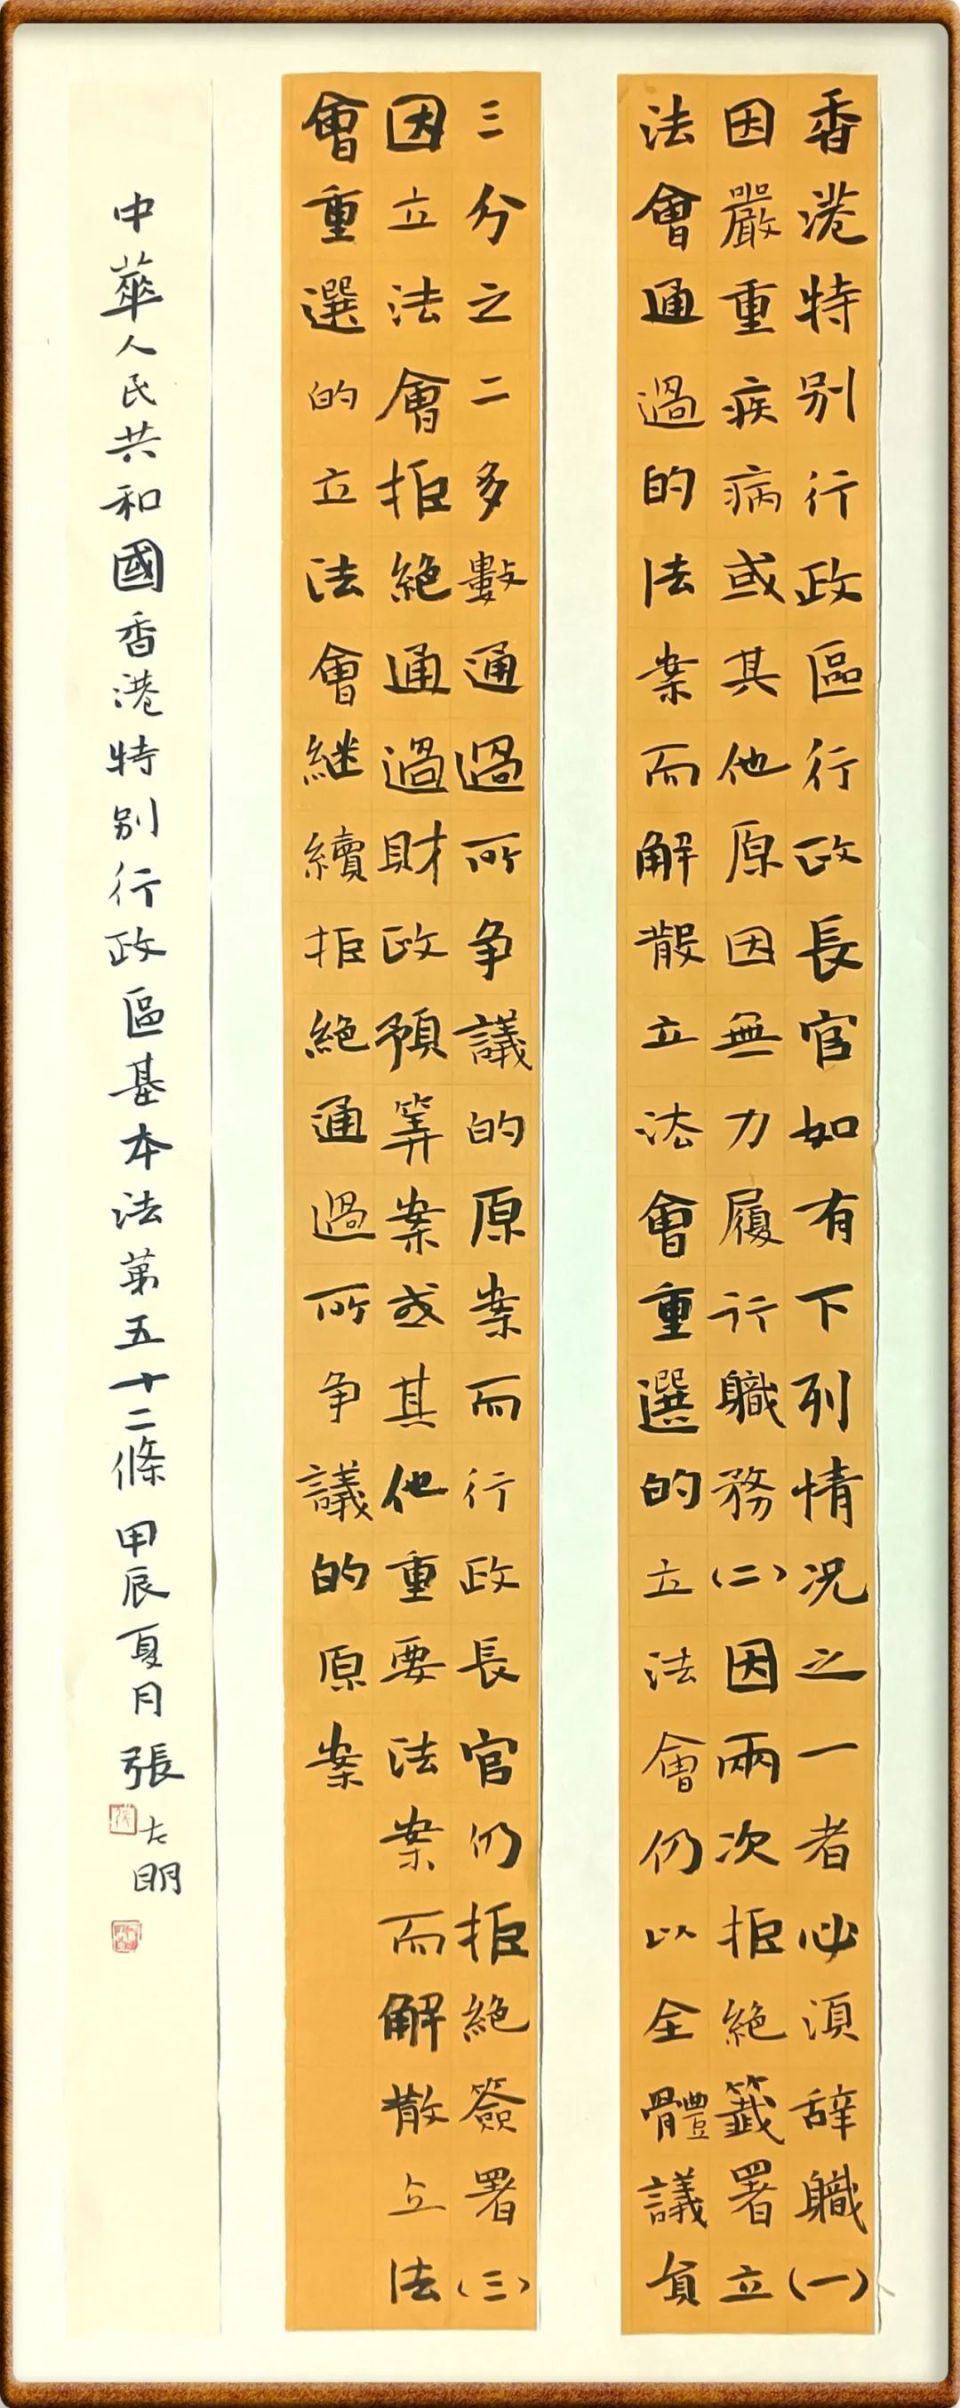 香港特别行政區行政長官如有下列情况之一者必須辞職(一)
因嚴重疾病或其他原因無力履行職務(二)因兩次拒絕籤署立
法會通過的法案而解散立法會重選的立法會仍以全體議員
三分之二多數通過所争議的原案而行政長官仍拒絕簽署(三)
因立法會拒絕通過財政預算案或其他重要法案而解散立法
會重選的立法會继續拒絕通過所争議的原案
中華人民共和國香港特别行政區基本法第五十二條 甲辰夏月 張左明